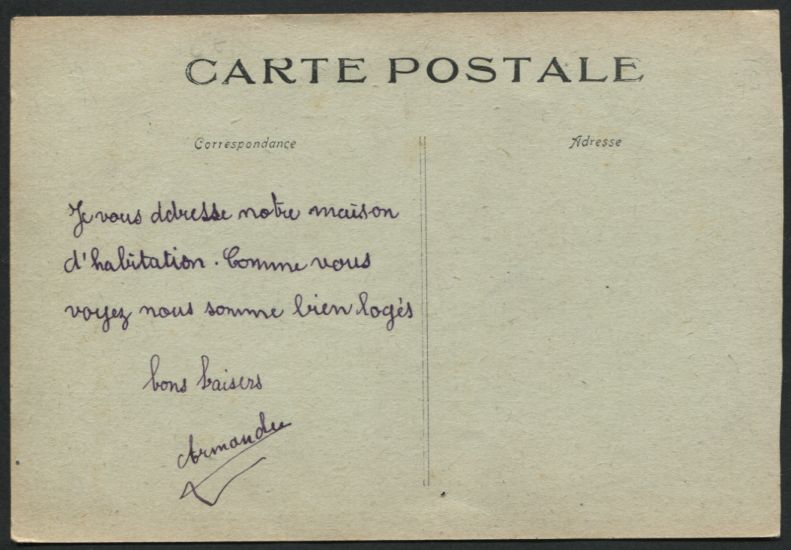 CARTE POSTALE
Correspondance
Adresse
Je vous ddresse notre maison
d'habitation. Comme vous
voyez nous somme bien logés
bons baisers
Armande